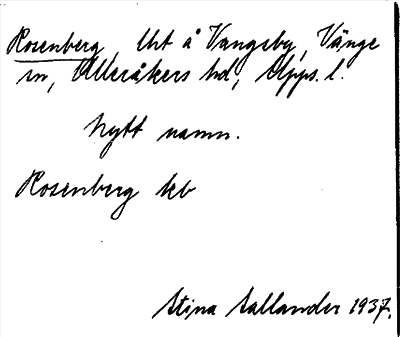 Rosenberg, lht å Vängeby, Vänge
sn, Ulleråkers hd, Upps. l.
Nytt namn.
Rosenberg kb
Stina Sallander 1937.